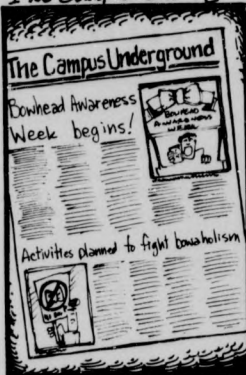 The Campus Underground
Bowhead Awareness
Week begins!
BOWHEAD
AWARENESS
WEEK
Activities planned to fight bowaholism